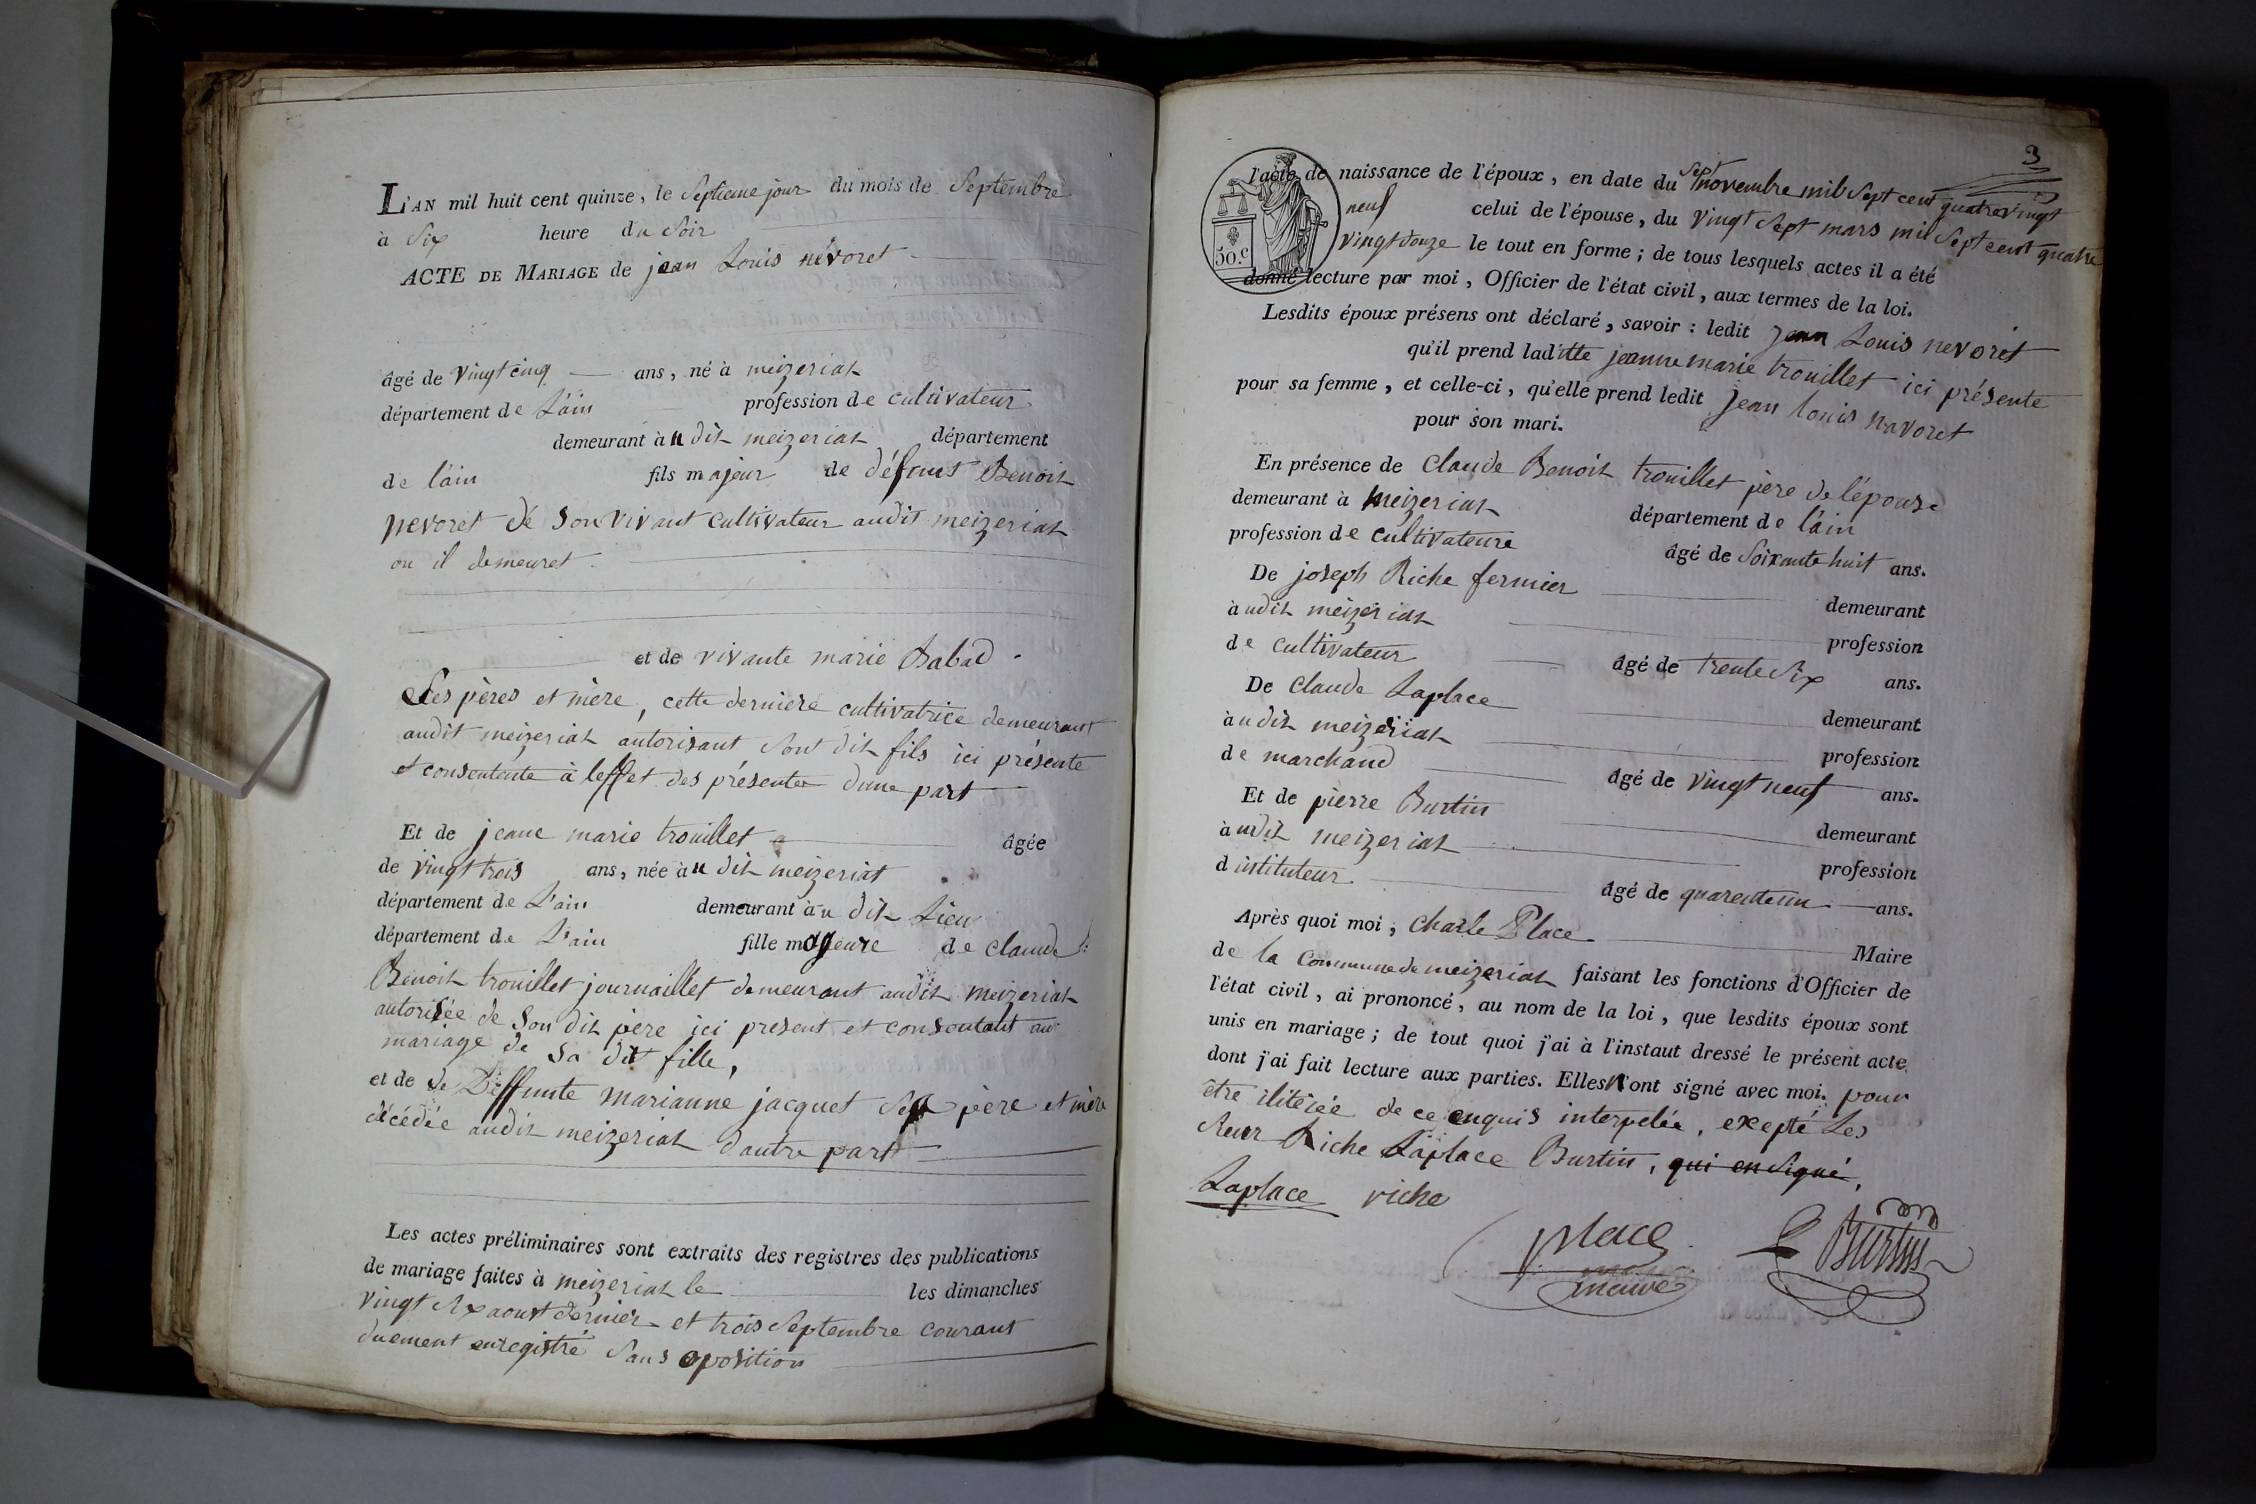 L'AN mil huit cent quinze, le Septieme jour du mois de Septembre
à Six heure du Soir
ACTE DE MARIAGE de jean Louis névoret
âgé de vingt cinq ans, né à meizeriat
département de L'ain profession de cultivateur
demeurant àu dit meizeriat département
de l'ain fils majeur de défunt Benoit
nevoret de son vivant cultivateur audit meizeriat
ou il demeuret.
et de vivante marie Babad.
Ses pères et mère, cette derniere cultivatrice demeurant
audit meizeriat autorisant sont dit fils ici présente
et consentente à leffet des présente dune part
Et de jeane marie trouillet âgée
de vingt trois ans, née àu dit meizeriat
département de L'ain demeurant àu dit Lieu
département de L'ain fille majeure de claude
Benoit trouillet journaillet demeurant audit meizeriat
autorisée de son dit père ici present et consentant au
mariage de sa dit fille,
et de de Deffunte marianne jacquet Ses père et mère
décédée audit meizeriat dautre part
Les actes préliminaires sont extraits des registres des publications
de mariage faites à meizeriat le les dimanches
vingt Six aoust dernier et trois Septembre courant
duement enregistré Sans oposition
3
l'acte de naissance de l'époux, en date du Sept novembre mil Sept cent quatre vingt
neuf celui de l'épouse, du vingt Sept mars mil Sept cent quatre
vingt douze le tout en forme; de tous lesquels actes il a été
30.c
donné lecture par moi, Officier de l'état civil, aux termes de la loi.
Lesdits époux présens ont déclaré, savoir: ledit jean Louis nevoret
qu'il prend laditte jeanne marie trouillet ici présente
pour sa femme, et celle-ci, qu'elle prend ledit jean louis navoret
pour son mari.
En présence de Claude Benoit trouillet père de lépouse
demeurant à meizeriat département de l'ain
profession de cultivateure âgé de Soixante huit ans.
De joseph Riche fermier demeurant
àudit meizeriat profession
de cultivateur âgé de trente Six ans.
De Claude Laplace demeurant
àudit meizeriat profession
de marchand âgé de vingt neuf ans.
Et de pierre Burtin demeurant
àudit meizeriat profession
d instituteur âgé de quarente un ans.
Après quoi moi, Charle Place Maire
de la Commune de meizeriat faisant les fonctions d'Officier de
l'état civil, ai prononcé, au nom de la loi, que lesdits époux sont
unis en mariage; de tout quoi j'ai à l'instaut dressé le présent acte
dont j'ai fait lecture aux parties. Elles n'ont signé avec moi. pour
être ilitérée de ce enquis interpelée, exepté Les
Sieur Riche Laplace Burtin, qui en signé,
Laplace riche
place Burtin